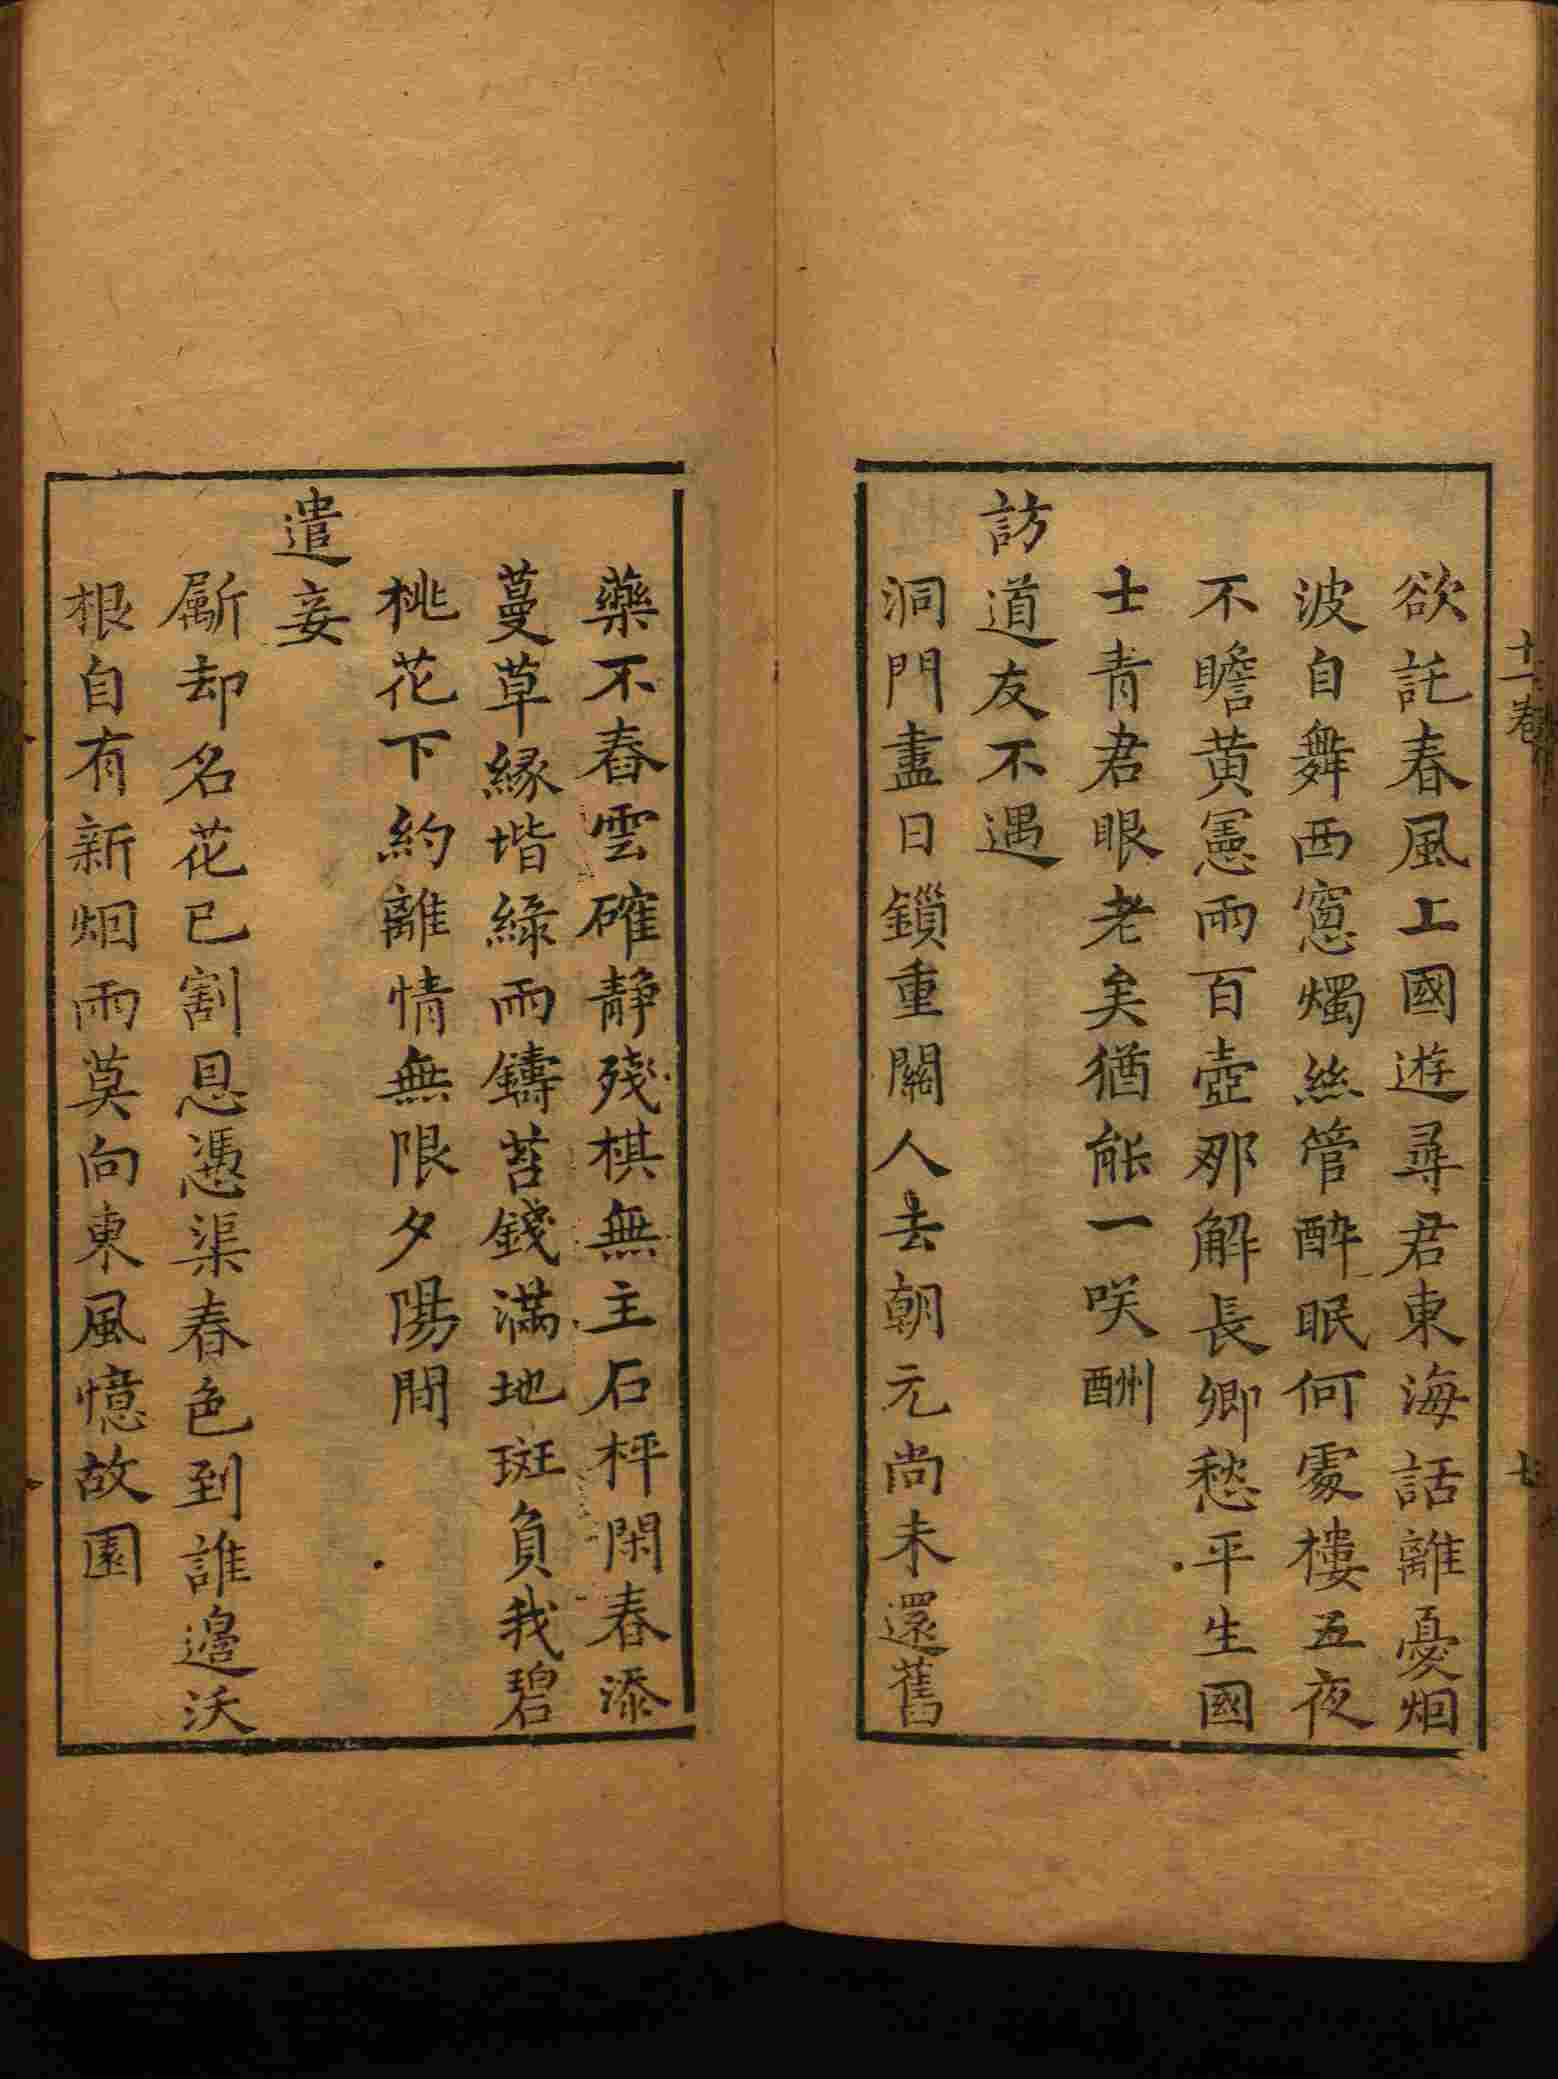 欲託春風上國遊尋君東海話離憂烟
波自舞西窻燭絲管醉眠何處樓五夜
不瞻黄憲雨百壺那解長卿愁平生國
士青君眼老矣猶能一咲酬
訪道友不遇
洞門盡日鎻重關人去朝元尚未還舊
藥不舂雲確静殘棋無主石枰閑春添
蔓草緣堦綠雨鑄苔錢滿地斑負我碧
桃花下約離情無限夕陽間
遣妾
斸却名花已割恩憑渠春色到誰邊沃
根自有新烟雨莫向東風憶故園
十一卷
七